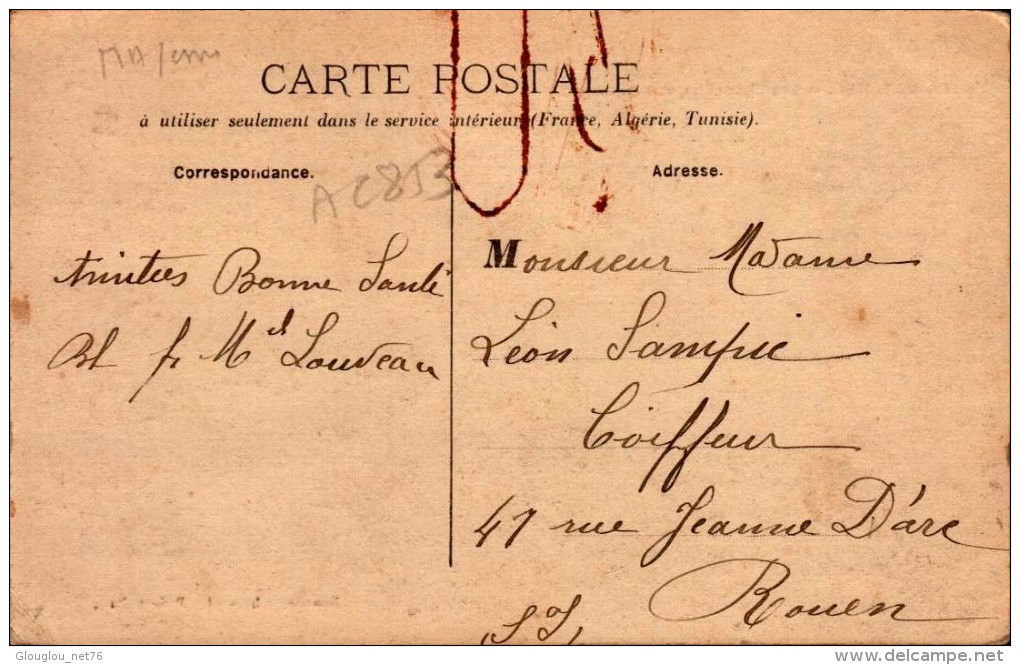 CARTE POSTALE
à utiliser seulement dans le service intérieur (France, Algérie, Tunisie).
Correspondance.
Adresse.
AC853
Bonne Santé
Louveau
Monsieur Madame
Léon
Coiffeur
47 rue Jeanne D'arc
Rouen
Glouglou_net76
www.delcampe.net